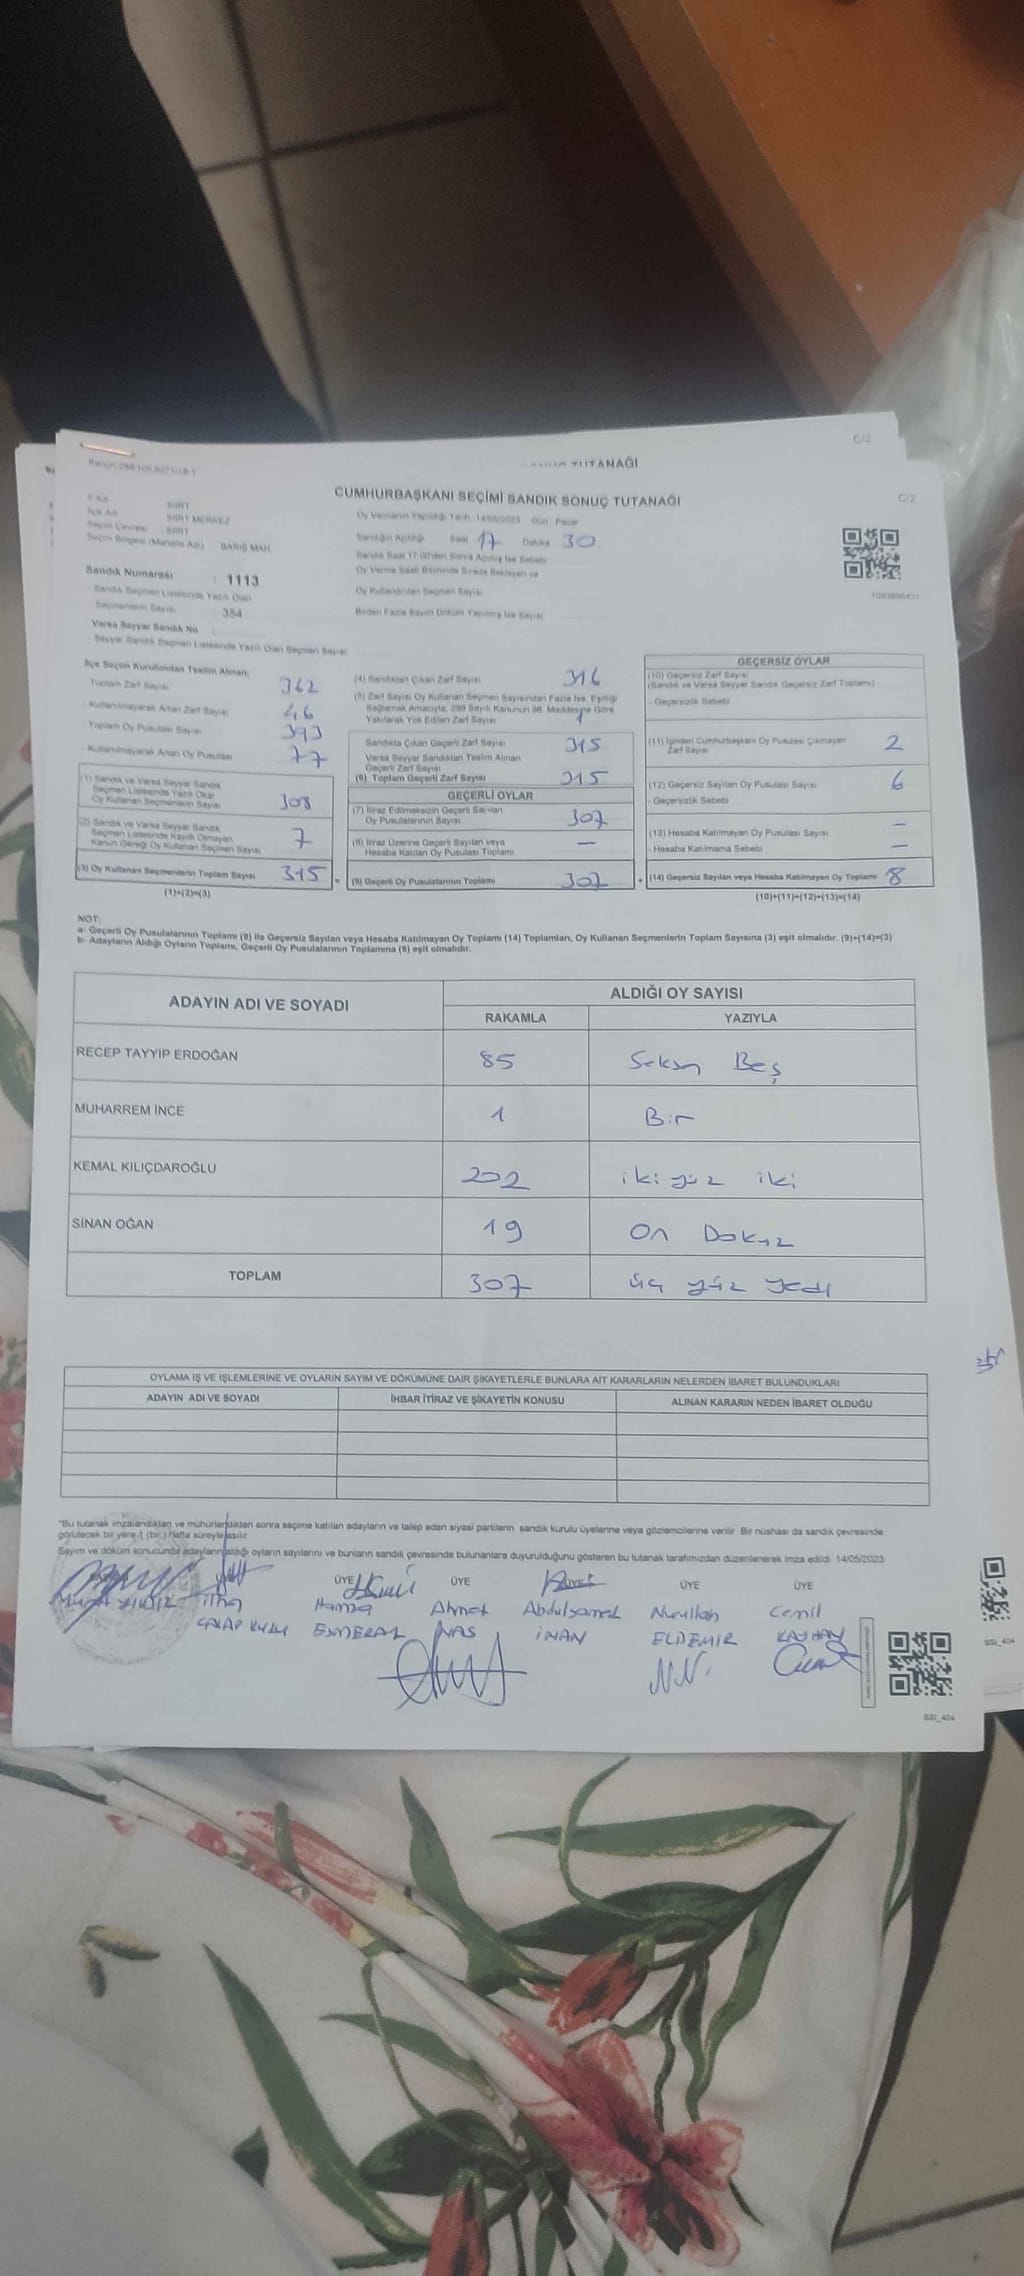 C/2
TUTANAĞI
C/2
CUMHURBAŞKANI SEÇİMİ SANDIK SONUÇ TUTANAĞI
İl Adı SİİRT
İlçe Adı SİİRT MERKEZ
Seçim Çevresi SİİRT
Seçim Bölgesi (Mahalle Adı) BARIŞ MAH.
Oy Vermenin Yapıldığı Tarih 14/05/2023 Gün Pazar
Sandığın Açıldığı Saat 17 Dakika 30
Sandık Saat 17.00'den Sonra Açılmış İse Sebebi
Oy Verme Saati Bitiminde Sırada Bekleyen ve
Oy Kullandırılan Seçmen Sayısı
Birden Fazla Sayım Döküm Yapılmış İse Sayısı
Sandık Numarası : 1113
Sandık Seçmen Listesinde Yazılı Olan
Seçmenlerin Sayısı 354
Varsa Seyyar Sandık No :
Seyyar Sandık Seçmen Listesinde Yazılı Olan Seçmen Sayısı
İlçe Seçim Kurulundan Teslim Alınan;
Toplam Zarf Sayısı 362
- Kullanılmayarak Artan Zarf Sayısı 46
- Toplam Oy Pusulası Sayısı 393
- Kullanılmayarak Artan Oy Pusulası 77
(1) Sandık ve Varsa Seyyar Sandık
Seçmen Listesinde Yazılı Olup
Oy Kullanan Seçmenlerin Sayısı 308
(2) Sandık ve Varsa Seyyar Sandık
Seçmen Listesinde Kayıtlı Olmayan
Kanun Gereği Oy Kullanan Seçmen Sayısı 7
(3) Oy Kullanan Seçmenlerin Toplam Sayısı 315
(1)+(2)=(3)
(4) Sandıktan Çıkan Zarf Sayısı 316
(5) Zarf Sayısı Oy Kullanan Seçmen Sayısından Fazla İse, Eşitliği
Sağlamak Amacıyla, 298 Sayılı Kanunun 98. Maddesine Göre
Yakılarak Yok Edilen Zarf Sayısı 1
Sandıkta Çıkan Geçerli Zarf Sayısı 315
Varsa Seyyar Sandıktan Teslim Alınan
Geçerli Zarf Sayısı
(6) Toplam Geçerli Zarf Sayısı 315
GEÇERLİ OYLAR
(7) İtiraz Edilmeksizin Geçerli Sayılan
Oy Pusulalarının Sayısı 307
(8) İtiraz Üzerine Geçerli Sayılan veya
Hesaba Katılan Oy Pusulası Toplamı —
= (9) Geçerli Oy Pusulalarının Toplamı 307
GEÇERSİZ OYLAR
(10) Geçersiz Zarf Sayısı
(Sandık ve Varsa Seyyar Sandık Geçersiz Zarf Toplamı)
- Geçersizlik Sebebi
(11) İçinden Cumhurbaşkanı Oy Pusulası Çıkmayan
Zarf Sayısı 2
(12) Geçersiz Sayılan Oy Pusulası Sayısı 6
- Geçersizlik Sebebi
(13) Hesaba Katılmayan Oy Pusulası Sayısı —
- Hesaba Katılmama Sebebi —
+ (14) Geçersiz Sayılan veya Hesaba Katılmayan Oy Toplamı 8
(10)+(11)+(12)+(13)=(14)
NOT:
a- Geçerli Oy Pusulalarının Toplamı (9) ile Geçersiz Sayılan veya Hesaba Katılmayan Oy Toplamı (14) Toplamları, Oy Kullanan Seçmenlerin Toplam Sayısına (3) eşit olmalıdır. (9)+(14)=(3)
b- Adayların Aldığı Oyların Toplamı, Geçerli Oy Pusulalarının Toplamına (9) eşit olmalıdır.
ADAYIN ADI VE SOYADI ALDIĞI OY SAYISI
RAKAMLA YAZIYLA
RECEP TAYYİP ERDOĞAN 85 Seksen Beş
MUHARREM İNCE 1 Bir
KEMAL KILIÇDAROĞLU 202 iki yüz iki
SİNAN OĞAN 19 On Dokuz
TOPLAM 307 üç yüz yedi
OYLAMA İŞ VE İŞLEMLERİNE VE OYLARIN SAYIM VE DÖKÜMÜNE DAİR ŞİKAYETLERLE BUNLARA AİT KARARLARIN NELERDEN İBARET BULUNDUKLARI
ADAYIN ADI VE SOYADI İHBAR İTİRAZ VE ŞİKAYETİN KONUSU ALINAN KARARIN NEDEN İBARET OLDUĞU
"Bu tutanak imzalandıktan ve mühürlendikten sonra seçime katılan adayların ve talep eden siyasi partilerin sandık kurulu üyelerine veya gözlemcilerine verilir. Bir nüshası da sandık çevresinde
görülecek bir yere 1 (bir) hafta süreyle asılır.
Sayım ve döküm sonucunda adayların aldığı oyların sayılarını ve bunların sandık çevresinde bulunanlara duyurulduğunu gösteren bu tutanak tarafımızdan düzenlenerek imza edildi. 14/05/2023
ÜYE ÜYE ÜYE ÜYE ÜYE
Hamza Ahmet Abdulsamet Nurullah Cemil
YILDIZ ESMERAL İNAN ELDEMİR KAYHAN
SSI_404
SSI_404